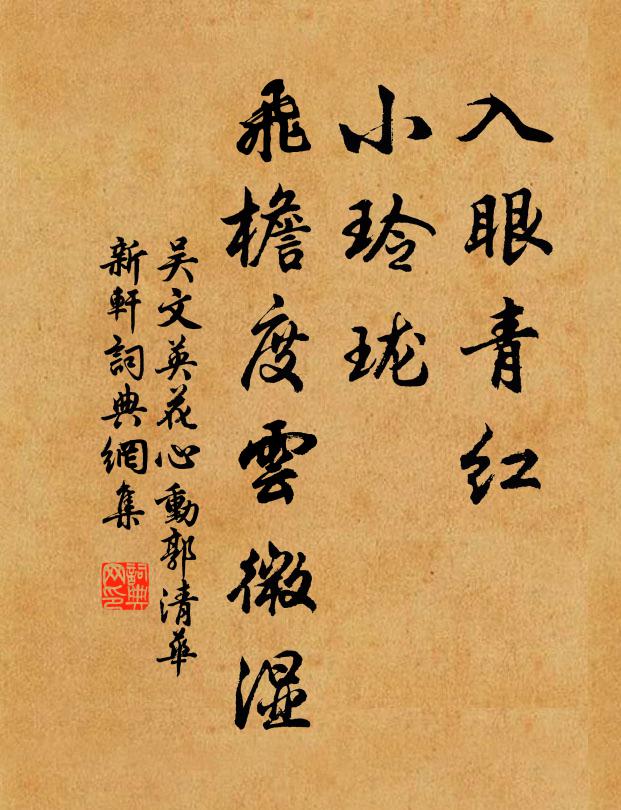 入眼青红
小玲珑
飛檐度雲微湿
吴文英花心動郭清華
新軒詞典網集
詞典网印